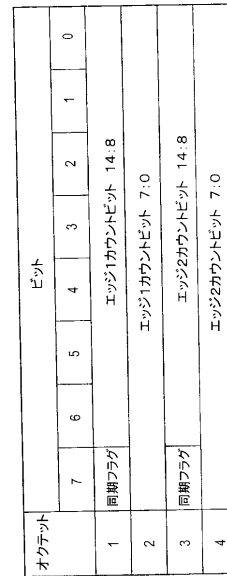 オクテット ビット
7 6 5 4 3 2 1 0
1 同期フラグ エッジ1カウントビット 14:8
2 エッジ1カウントビット 7:0
3 同期フラグ エッジ2カウントビット 14:8
4 エッジ2カウントビット 7:0